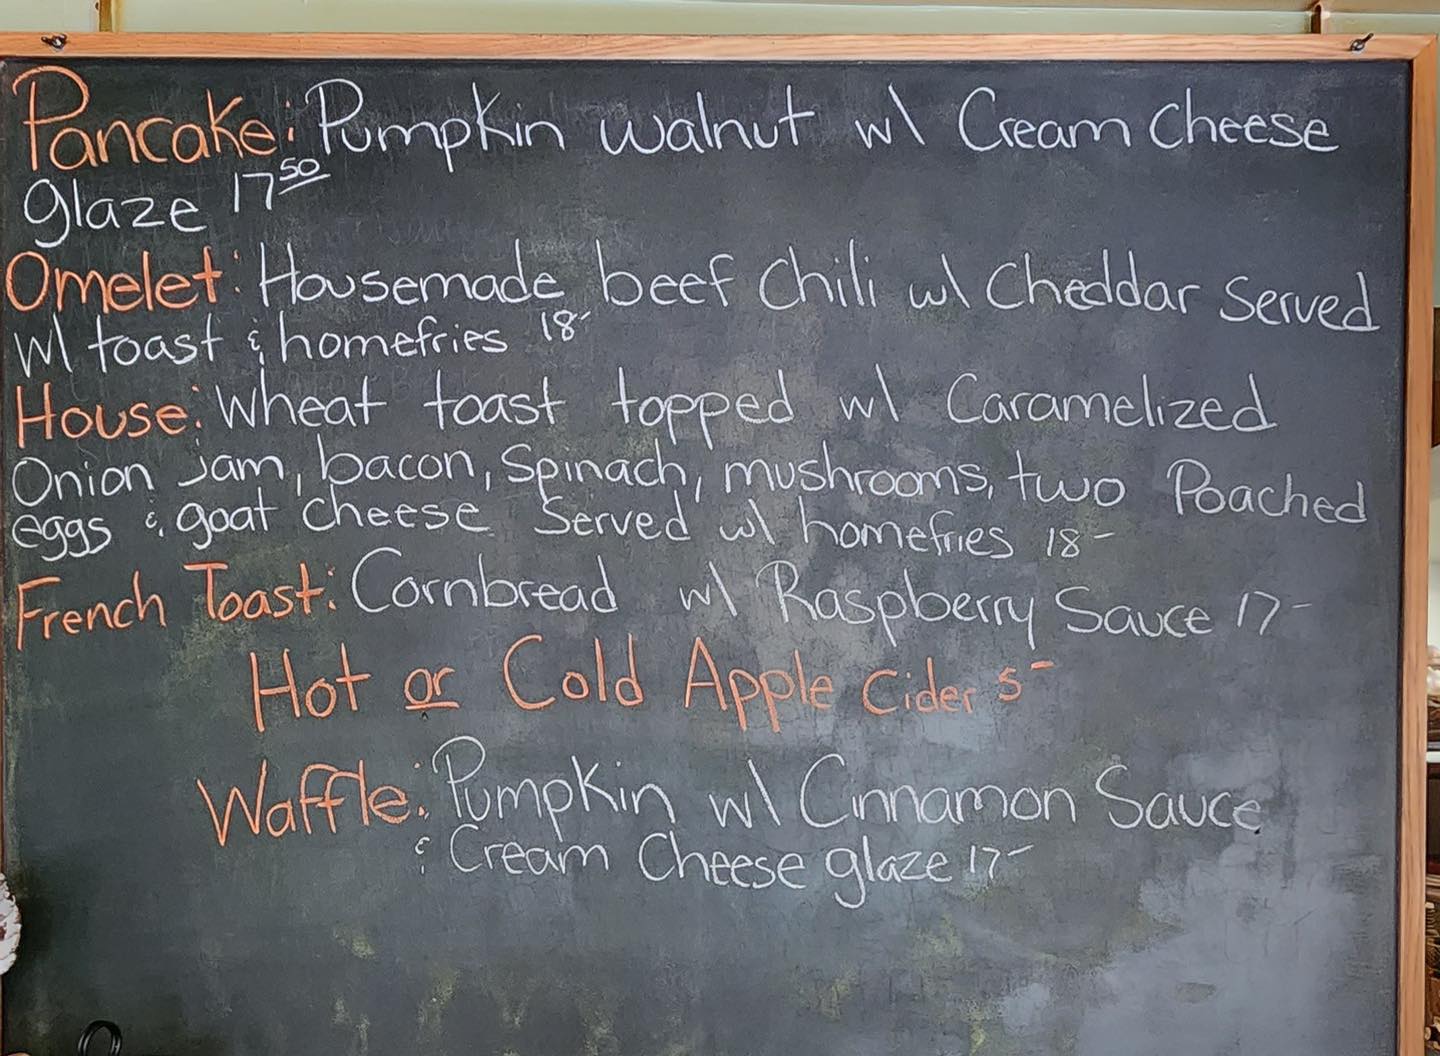 Pancake: Pumpkin walnut w\ Cream Cheese
glaze 17 50
Omelet: Housemade beef Chili w\ Cheddar Served
w\ toast & homefries 18-
House: Wheat toast topped w\ Caramelized
Onion jam, bacon, Spinach, mushrooms, two Poached
eggs & goat cheese Served w\ homefries 18-
French Toast: Cornbread w\ Raspberry Sauce 17-
Hot or Cold Apple Cider 5-
Waffle: Pumpkin w\ Cinnamon Sauce
& Cream Cheese glaze 17-